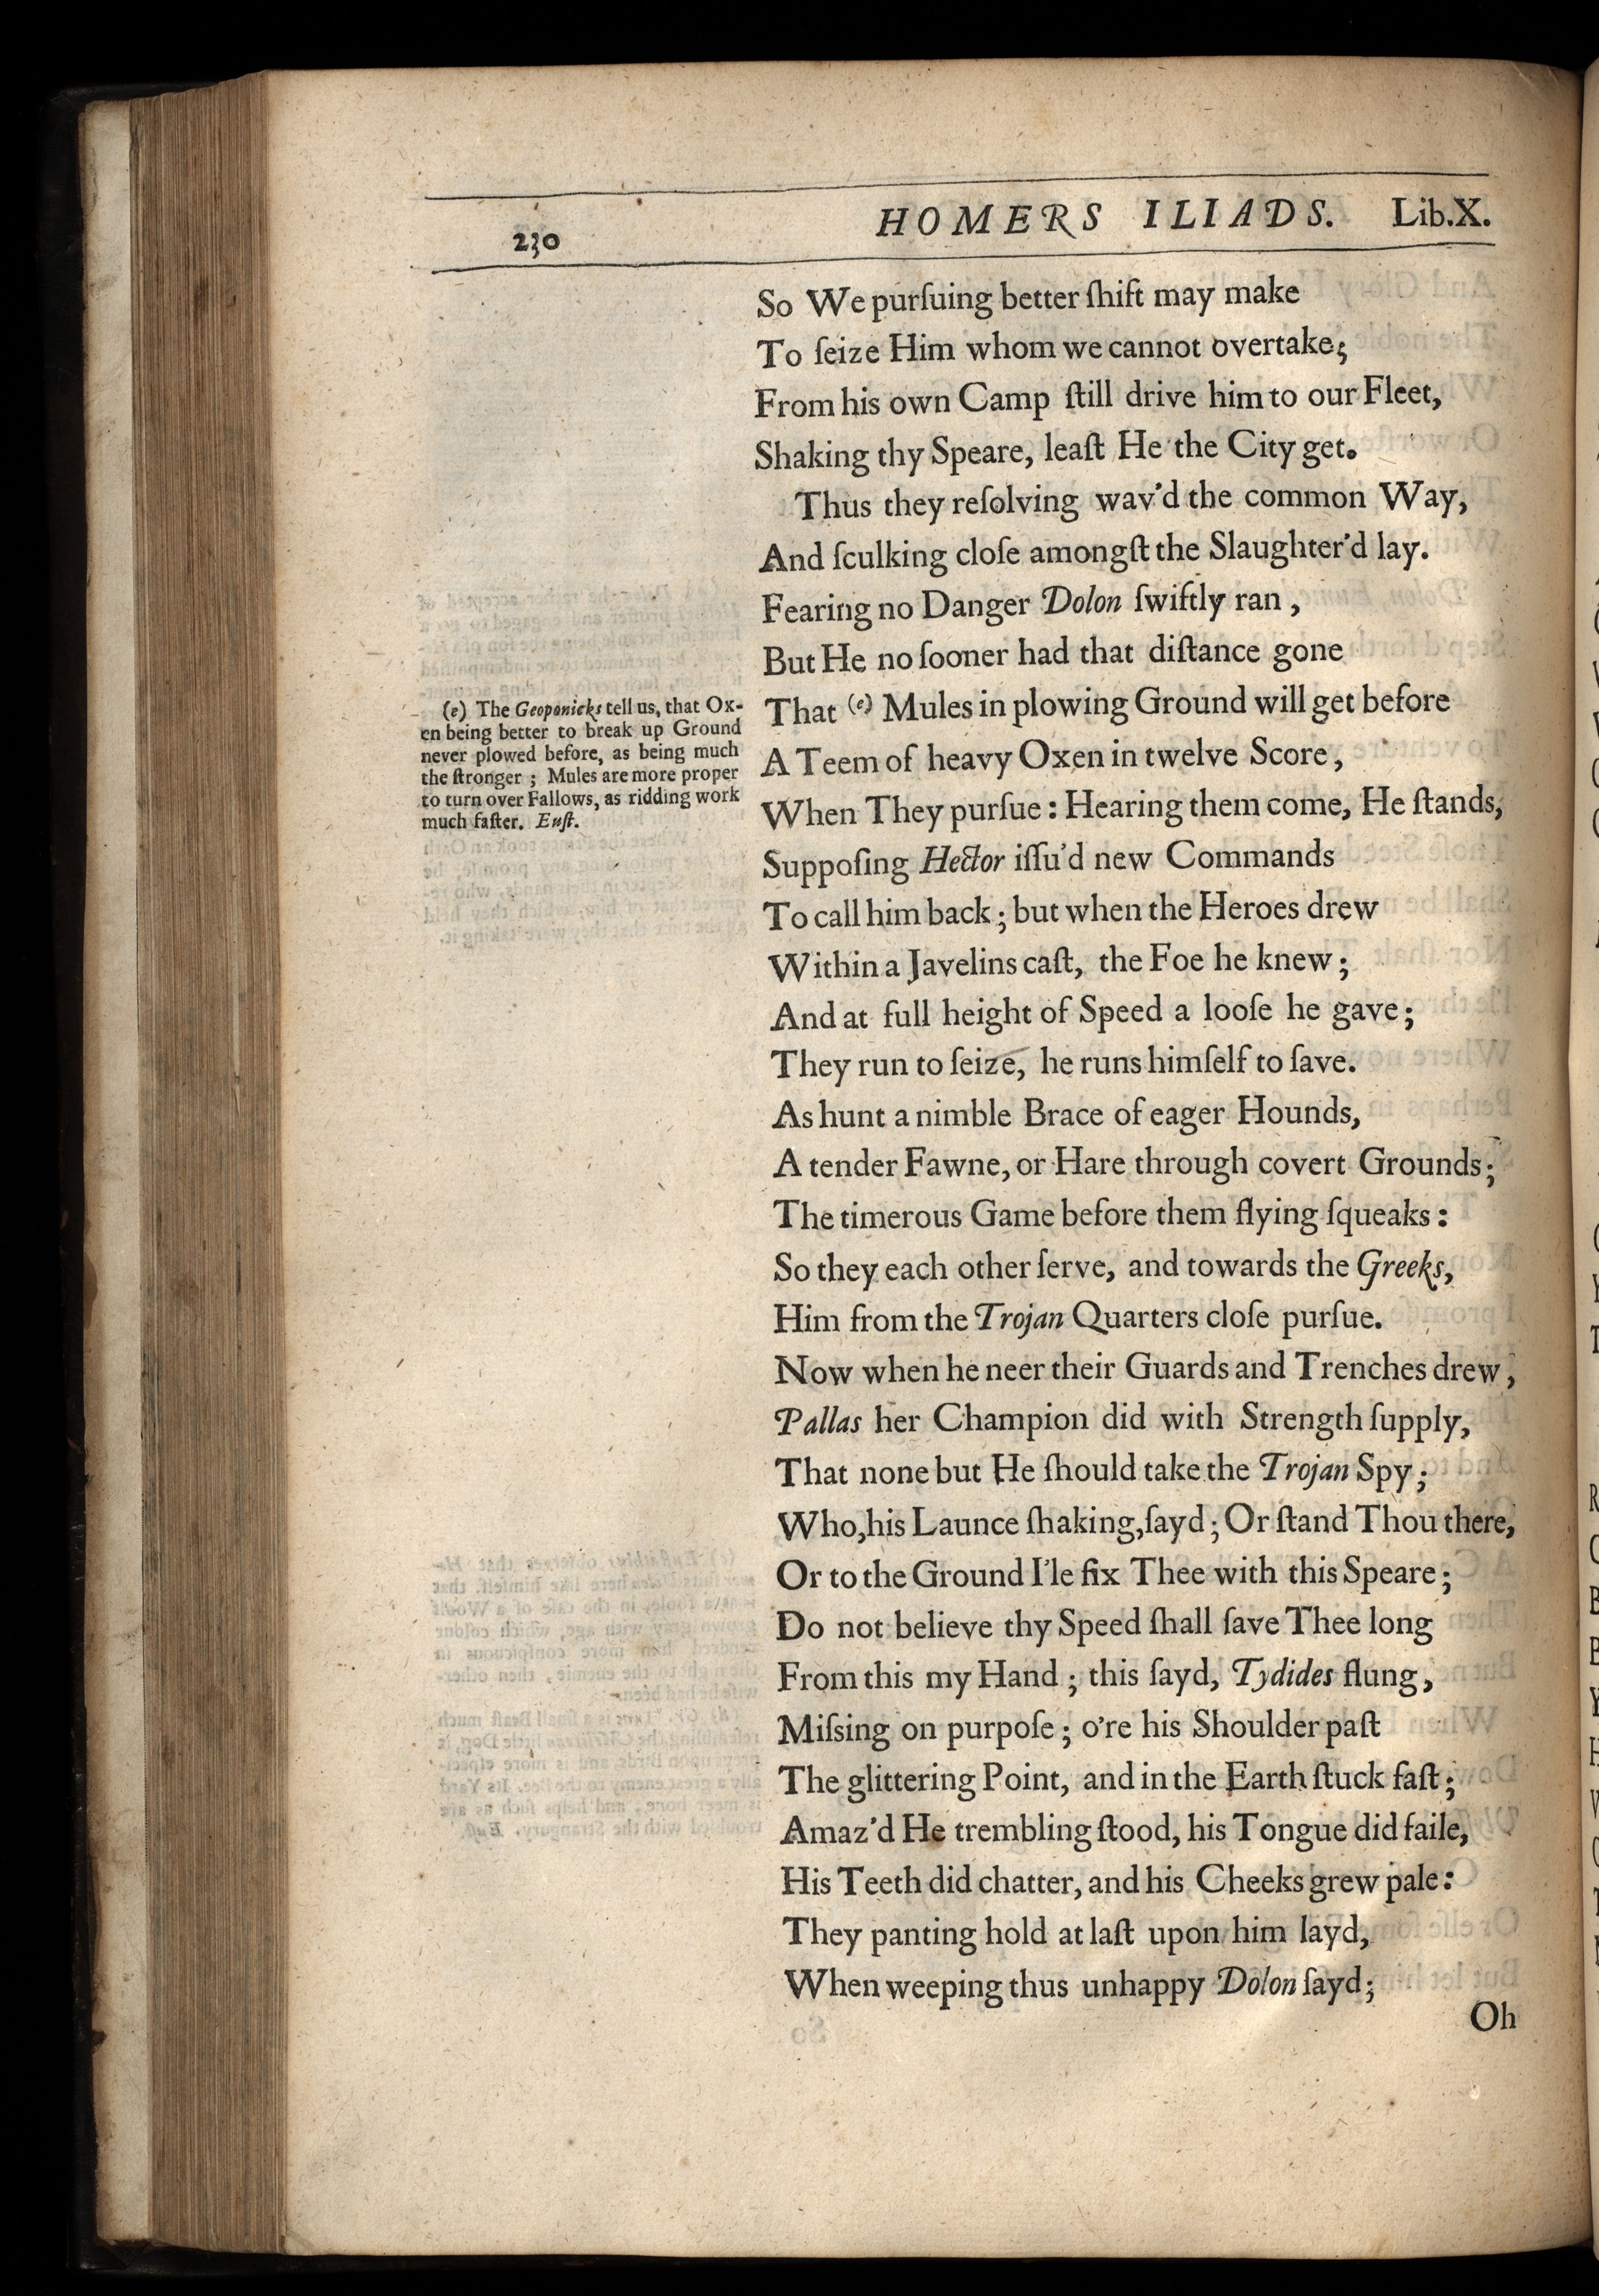 230 HOMERS ILIADS. Lib.X.
So We purſuing better ſhift may make
To ſeize Him whom we cannot overtake;
From his own Camp ſtill drive him to our Fleet,
Shaking thy Speare, leaſt He the City get.
Thus they reſolving wav'd the common Way,
And ſculking cloſe amongſt the Slaughter'd lay.
Fearing no Danger Dolon ſwiftly ran,
But He no ſooner had that diſtance gone
That (e) Mules in plowing Ground will get before
A Teem of heavy Oxen in twelve Score,
When They purſue: Hearing them come, He ſtands,
Suppoſing Hector iſſu'd new Commands
To call him back; but when the Heroes drew
Within a Javelins caſt, the Foe he knew;
And at full height of Speed a looſe he gave;
They run to ſeize, he runs himſelf to ſave.
As hunt a nimble Brace of eager Hounds,
A tender Fawne, or Hare through covert Grounds;
The timerous Game before them flying ſqueaks:
So they each other ſerve, and towards the Greeks,
Him from the Trojan Quarters cloſe purſue.
Now when he neer their Guards and Trenches drew,
Pallas her Champion did with Strength ſupply,
That none but He ſhould take the Trojan Spy;
Who, his Launce ſhaking, ſayd; Or ſtand Thou there,
Or to the Ground I'le fix Thee with this Speare;
Do not believe thy Speed ſhall ſave Thee long
From this my Hand; this ſayd, Tydides flung,
Miſsing on purpoſe; o're his Shoulder paſt
The glittering Point, and in the Earth ſtuck faſt;
Amaz'd He trembling ſtood, his Tongue did faile,
His Teeth did chatter, and his Cheeks grew pale:
They panting hold at laſt upon him layd,
When weeping thus unhappy Dolon ſayd;
Oh
(e) The Geoponicks tell us, that Ox-
en being better to break up Ground
never plowed before, as being much
the ſtronger; Mules are more proper
to turn over Fallows, as ridding work
much faſter. Euſt.